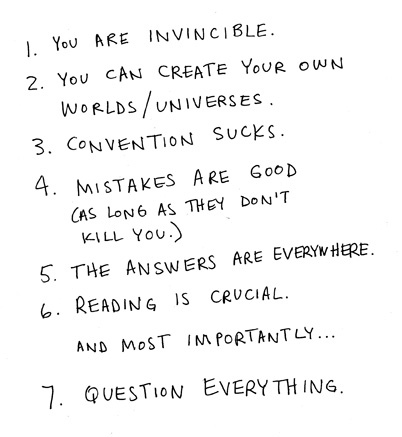 1. YOU ARE INVINCIBLE.
2. YOU CAN CREATE YOUR OWN
WORLDS/UNIVERSES.
3. CONVENTION SUCKS.
4. MISTAKES ARE GOOD
(AS LONG AS THEY DON'T
KILL YOU.)
5. THE ANSWERS ARE EVERYWHERE.
6. READING IS CRUCIAL.
AND MOST IMPORTANTLY...
7. QUESTION EVERYTHING.